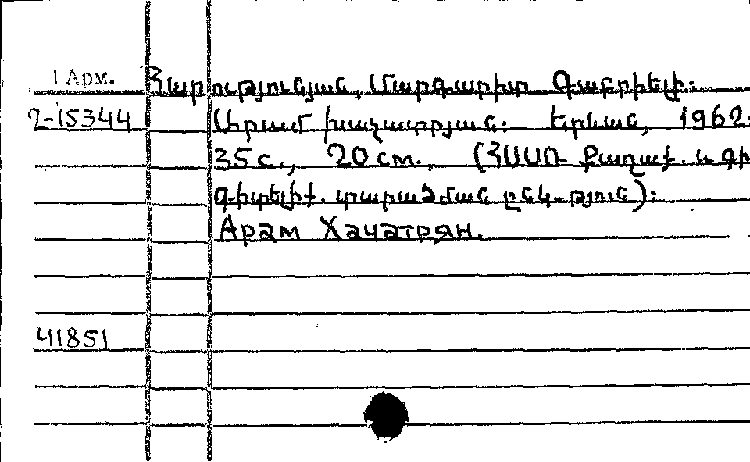 1 Арм.
Հարությունյան, Մարգարիտ Գաբրիելի:
2-15344
Արամ Խաչատրյան: Երևան, 1962.
35 с., 20 см. (ՀՍՍՌ Քաղաք. և գի
գիտելիք. տարածման ընկ-թյուն):
Арам Хачатрян.
41851